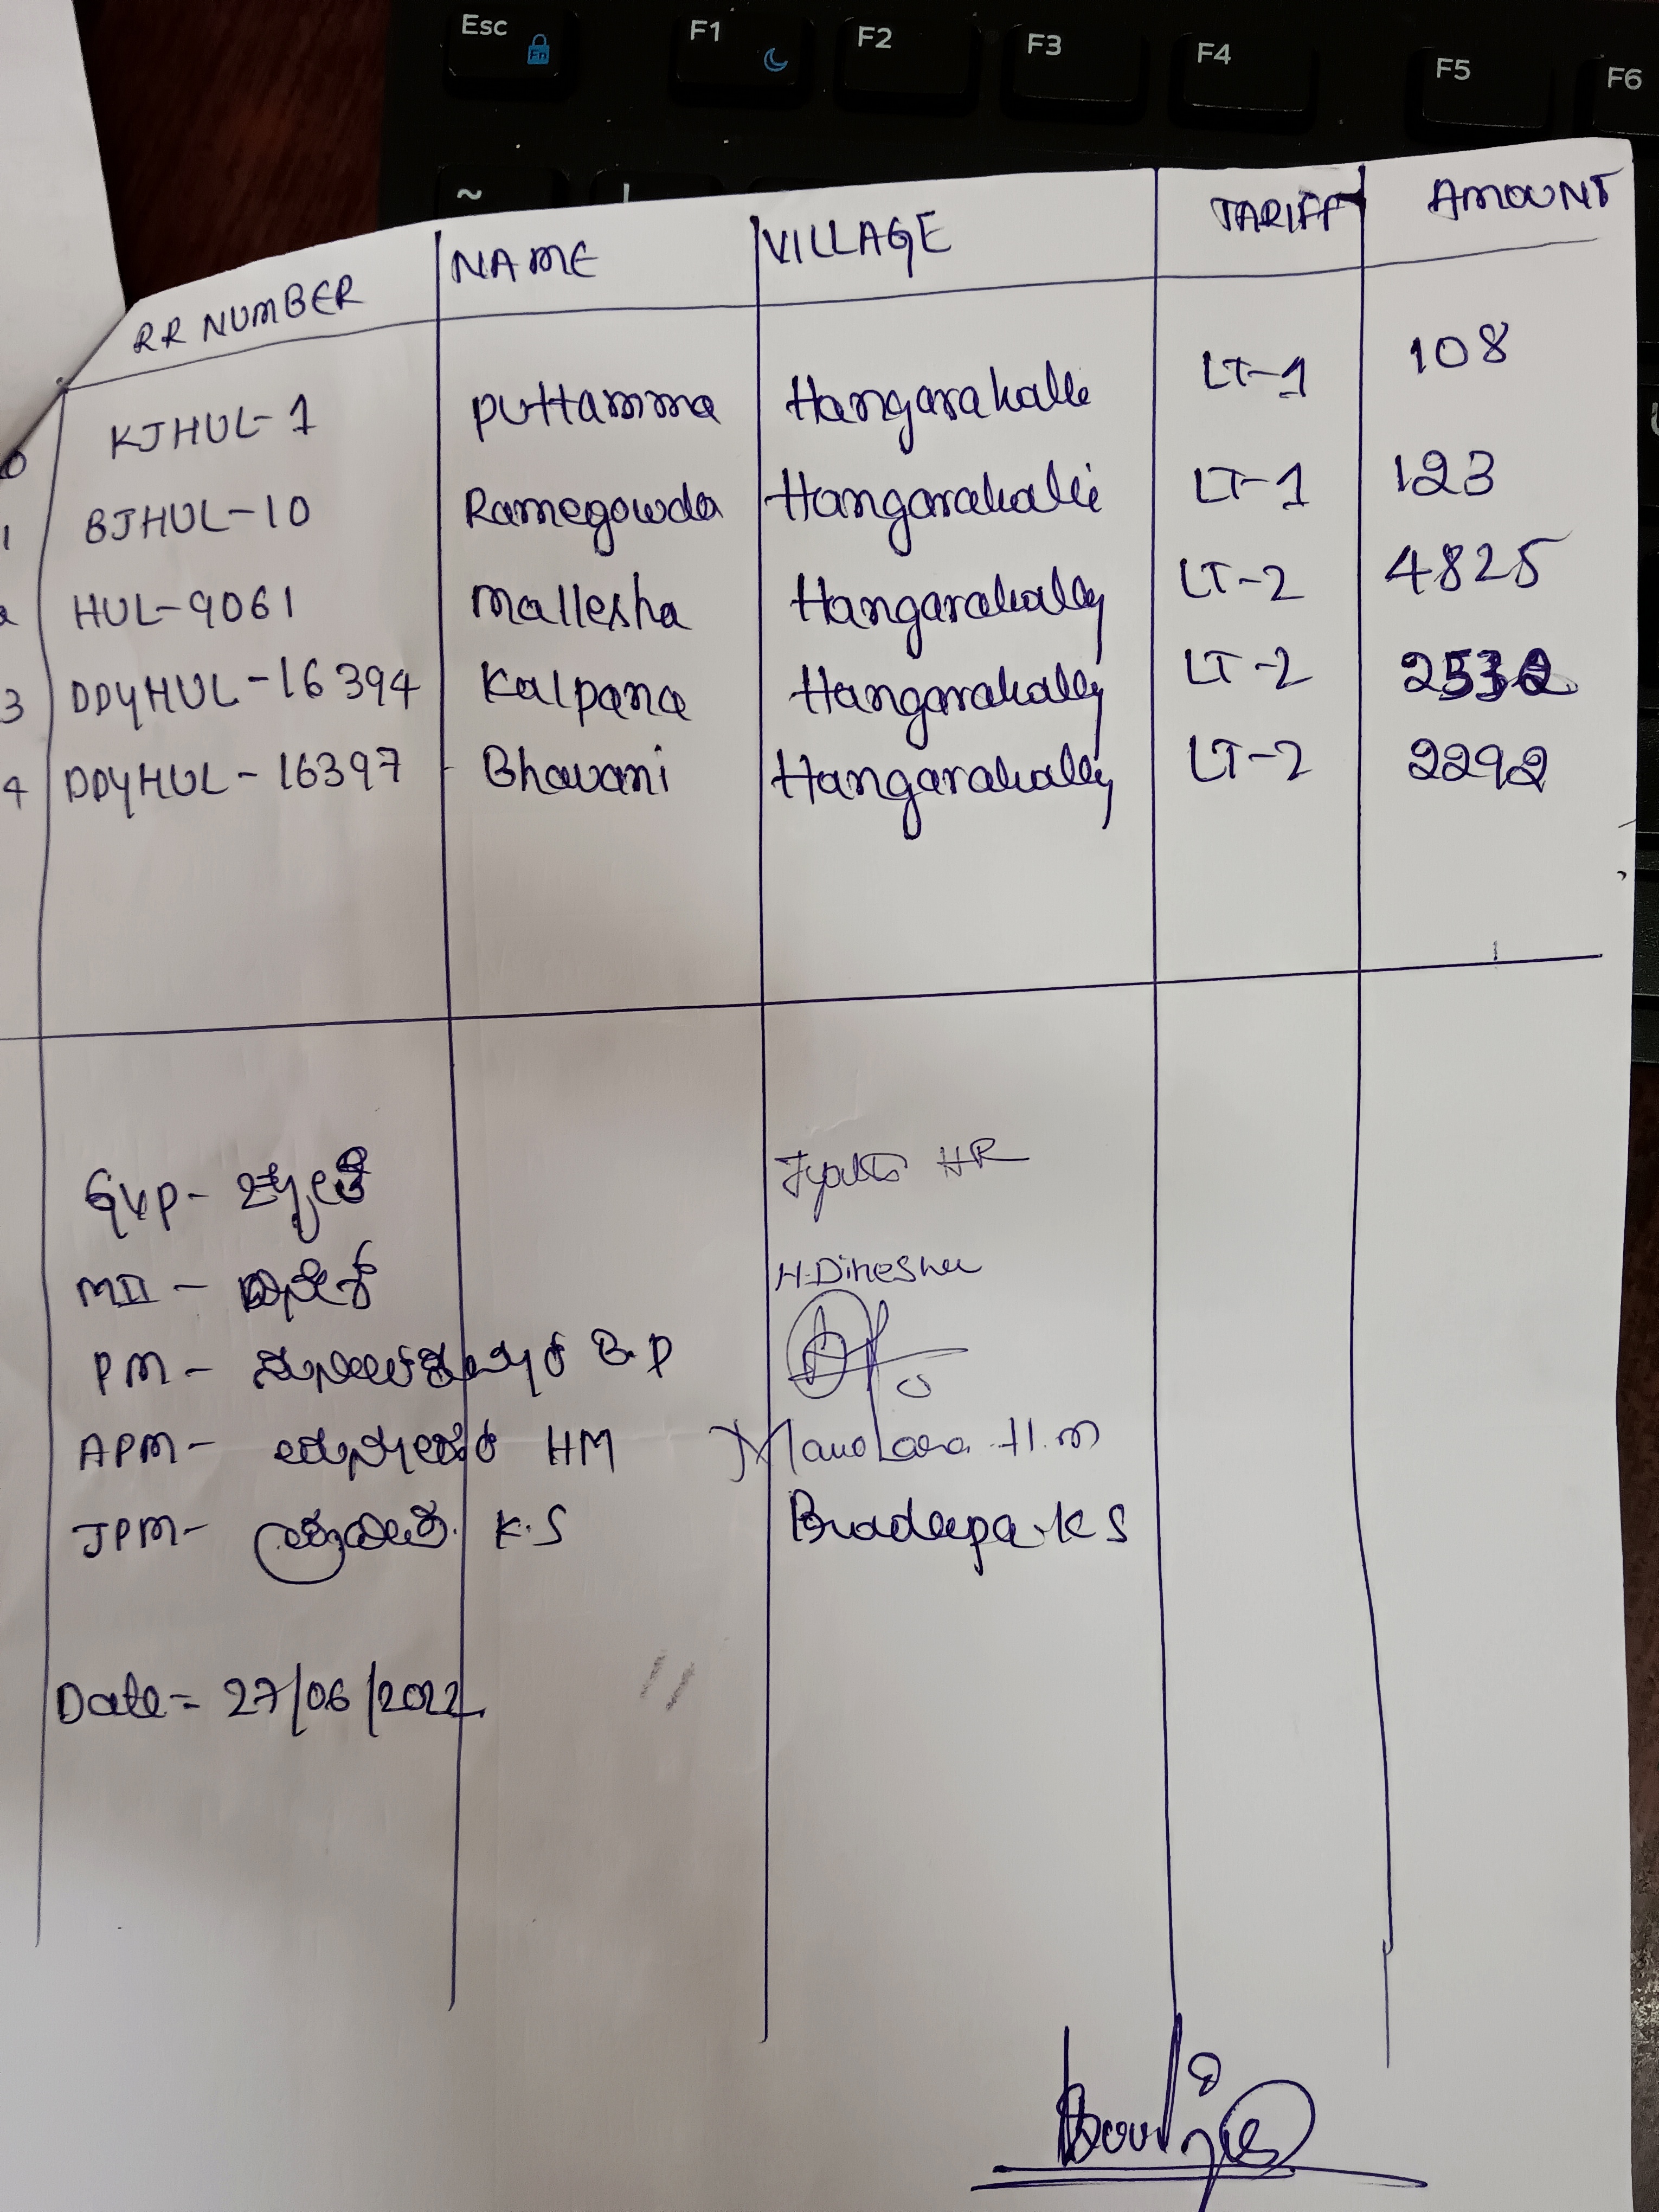 Esc F1 F2 F3 F4 F5 F6
Fn
~
RR NUMBER NAME VILLAGE TARIFF AMOUNT
KJHUL-1 Puttamma Hangarahalli LT-1 108
1 BJHUL-10 Ramegowda Hangarahalli LT-1 123
2 HUL-9061 Mallesha Hangarahally LT-2 4825
3 DDYHUL-16394 Kalpana Hangarahally LT-2
4 DDYHUL-16397 Bhavani Hangarahally LT-2 2292
GVP- ಜ್ಯೋತಿ Jyothi HR
MII - ದಿನೇಶ್ H.Dinesha
PM- B.P
APM- HM Manohara H.M
JPM- K.S Pradeepa K S
Date= 27/06/2022